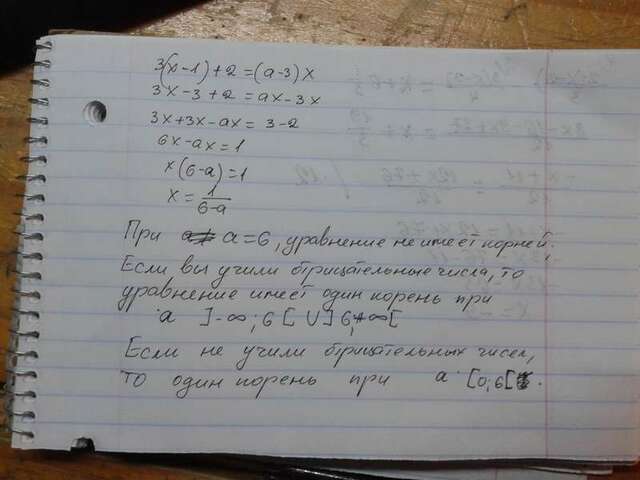 3(x-1)+2=(a-3)x
3x-3+2=ax-3x
3x+3x-ax=3-2
6x-ax=1
x(6-a)=1
x=1/(6-a)
При a=6, уравнение не имеет корней.
Если вы учили отрицательные числа, то
уравнение имеет один корень при
a ]-∞;6[ U ]6;+∞[
Если не учили отрицательных чисел,
то один корень при a [0;6[.